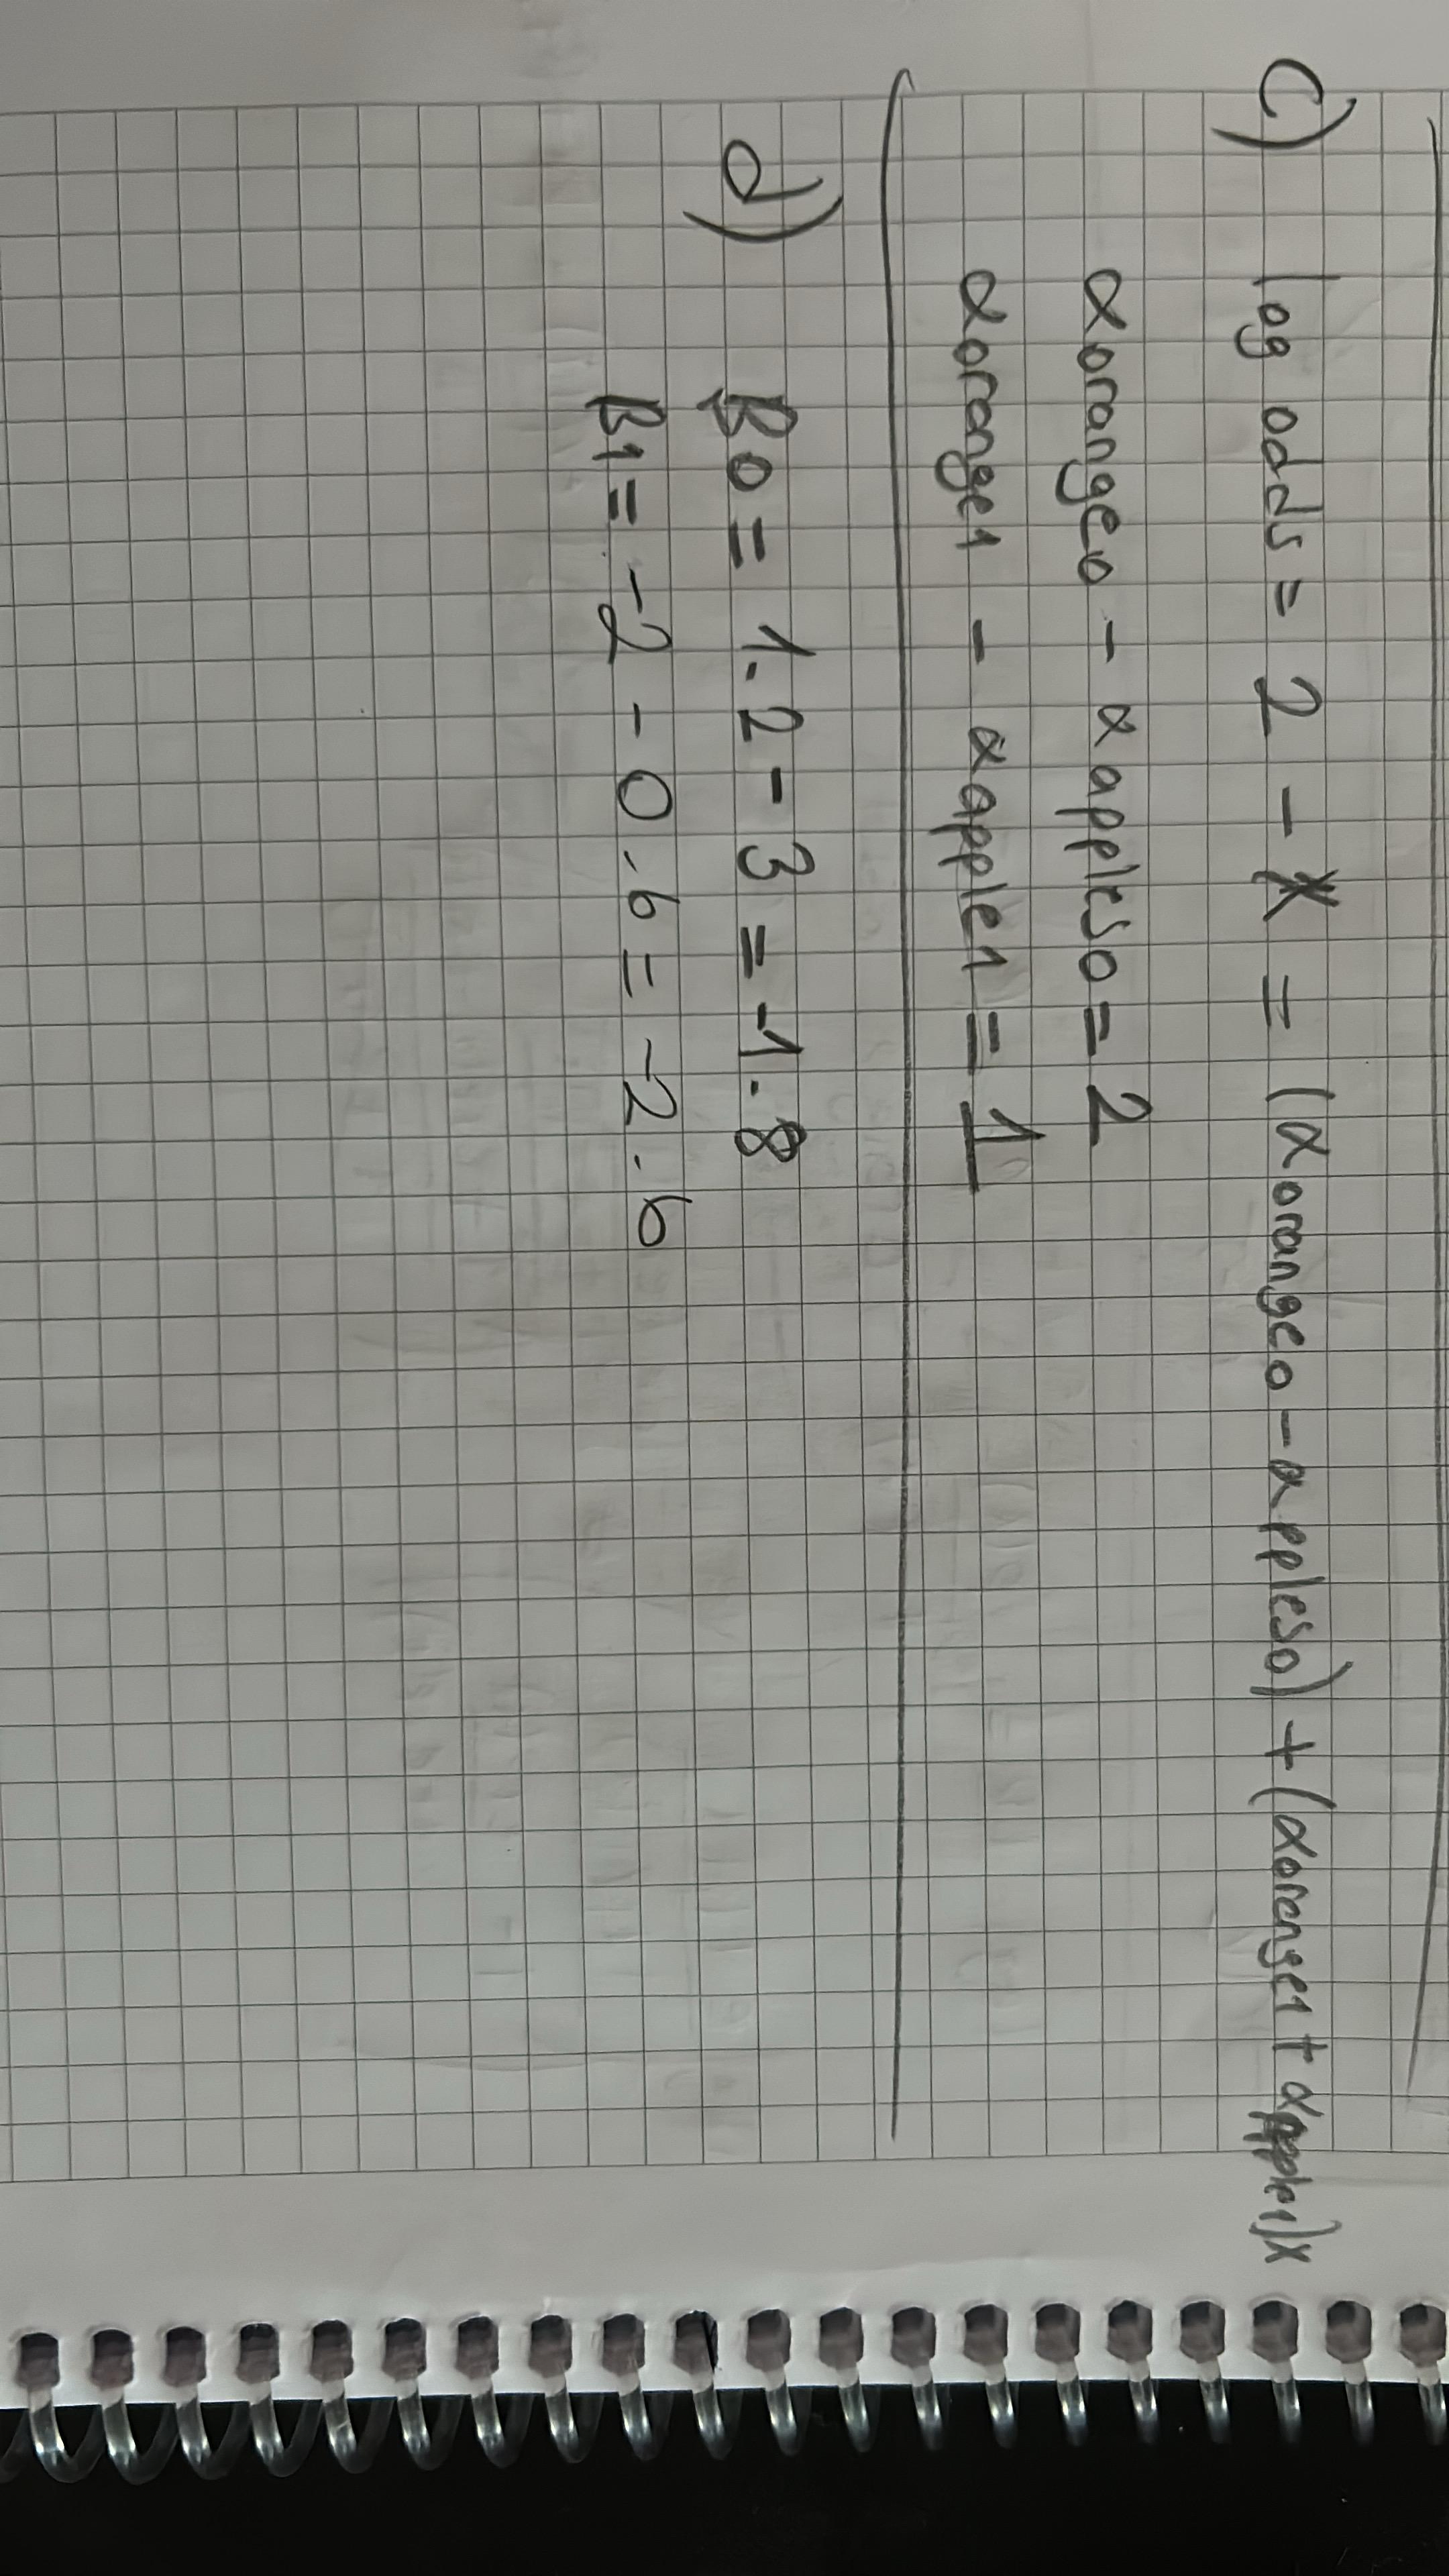 c) log odds = 2 - x = (αorange0 - αpples0) + (αorenge1 + αapple1)x
αorange0 - αapples0 = 2
αorenge1 - αapple1 = 1
d) B0 = 1.2 - 3 = -1.8
B1 = -2 - 0.6 = -2.6